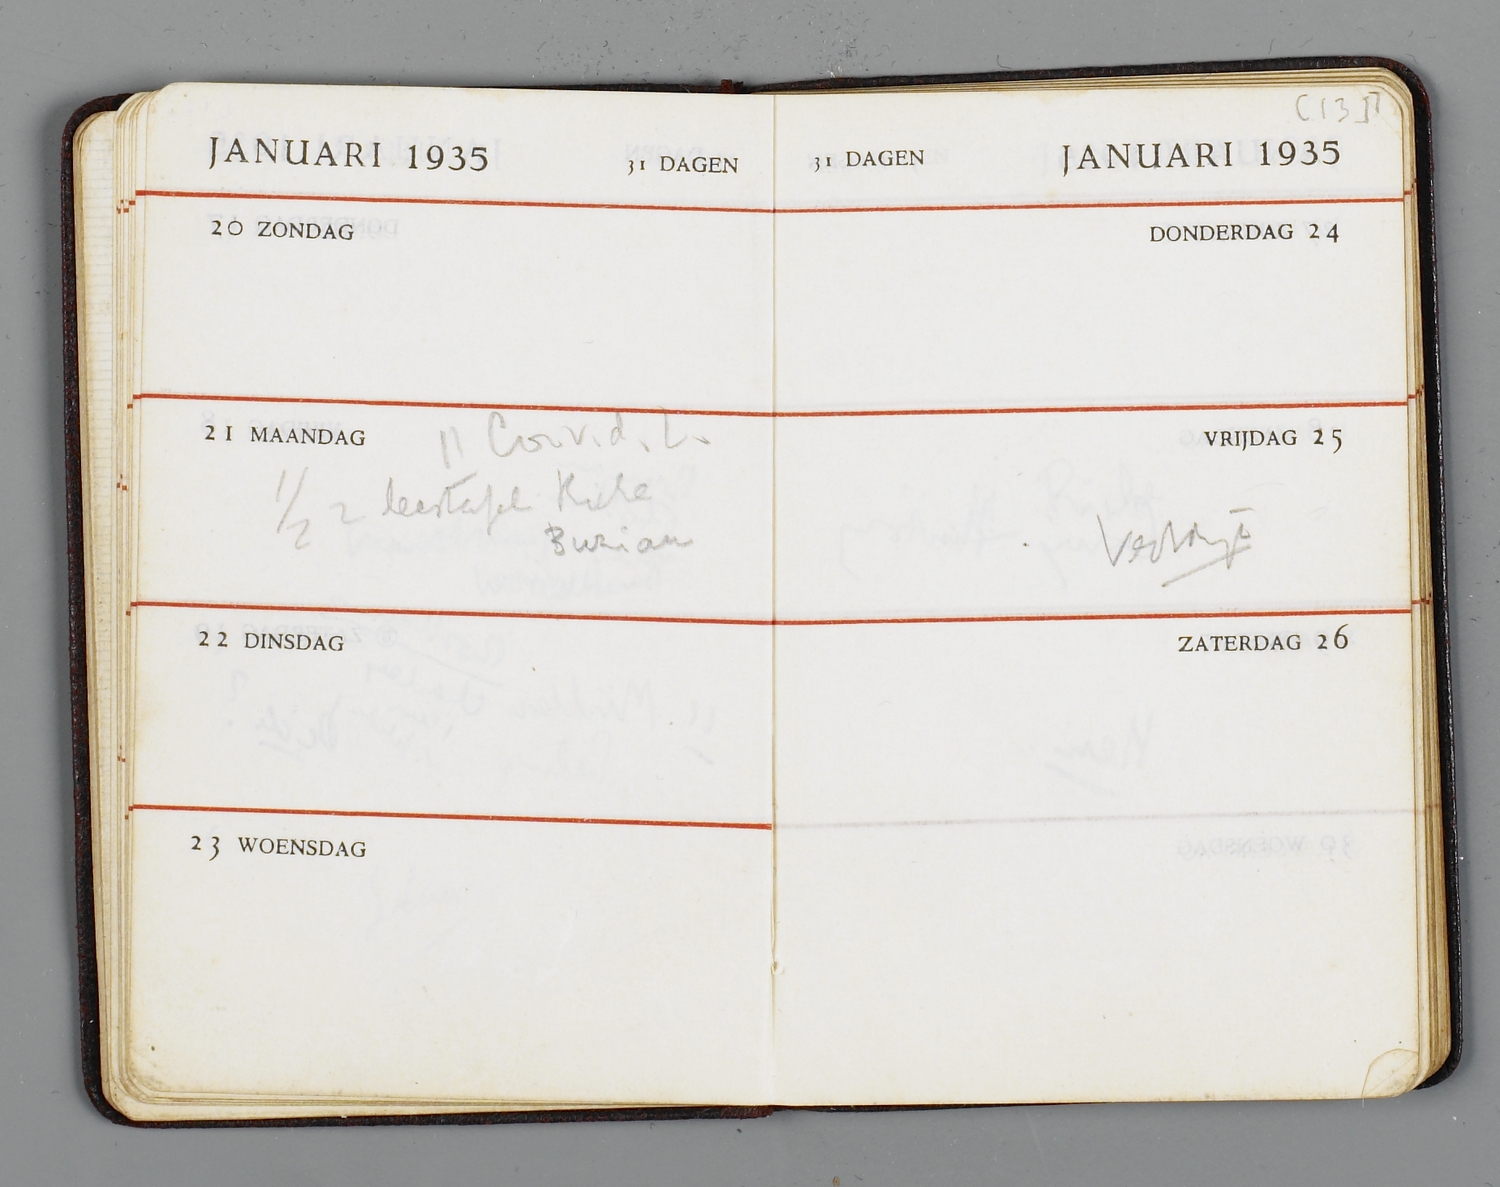 JANUARI 1935 31 DAGEN
20 ZONDAG
21 MAANDAG 11
1/2 2 leestafel
Burian
22 DINSDAG
23 WOENSDAG
[13]
31 DAGEN JANUARI 1935
DONDERDAG 24
VRIJDAG 25
ZATERDAG 26